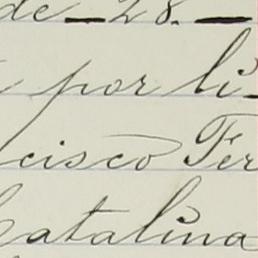 de_28._
por li-
cisco Fer
Catalina